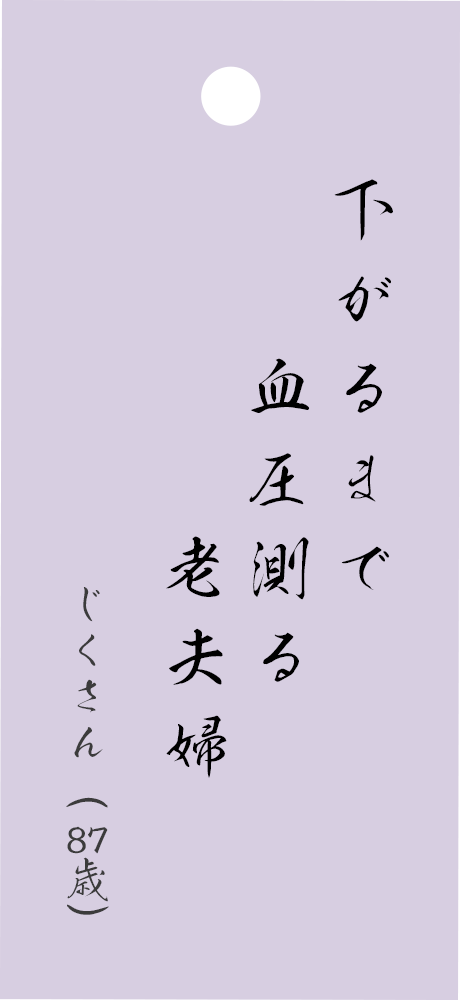 下がるまで
血圧測る
老夫婦
じくさん（87歳）